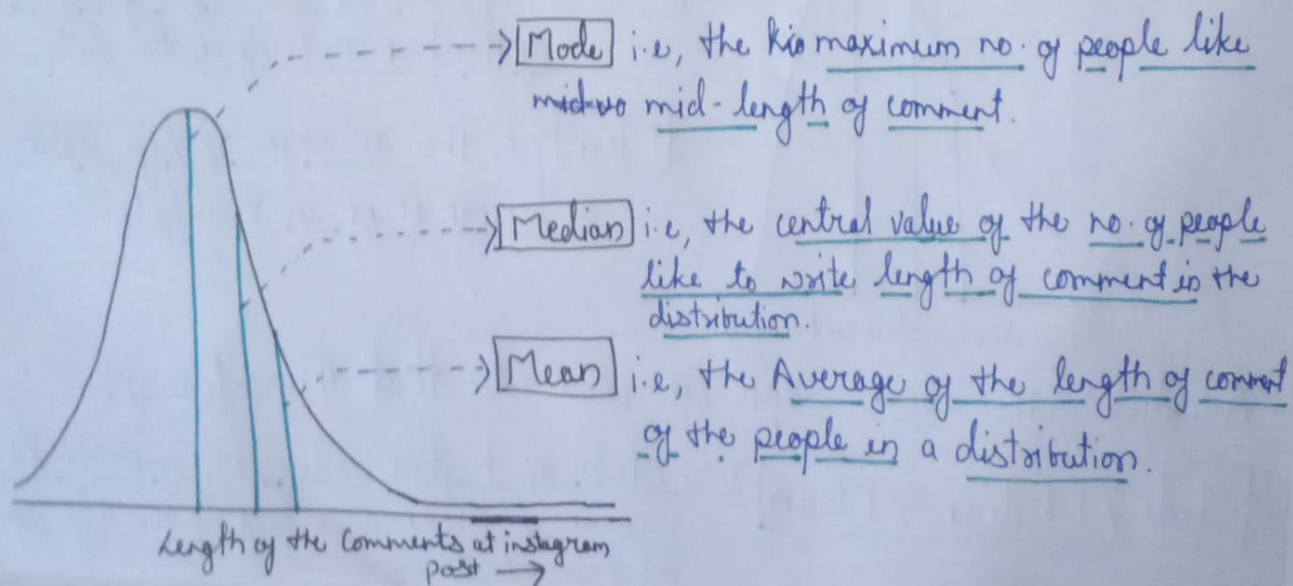 Mode i.e, the maximum no. of people like
mid-length of comment.
Median i.e, the central value of the no. of people
like to write length of comment in the
distribution.
Mean i.e, the Average of the length of comment
of the people in a distribution.
Length of the Comments at instagram
post